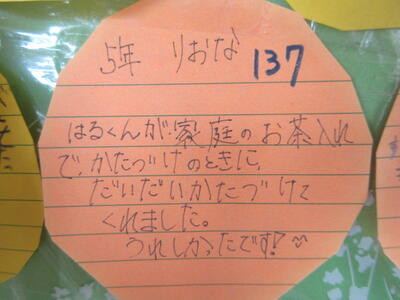 5年 りおな 137
はるくんが、家庭のお茶入れ
で、かたづけのときに、
だいだいかたづけて
くれました。
うれしかったです!